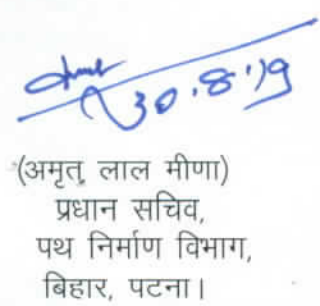 30.8.19
(अमृत लाल मीणा)
प्रधान सचिव,
पथ निर्माण विभाग,
बिहार, पटना।